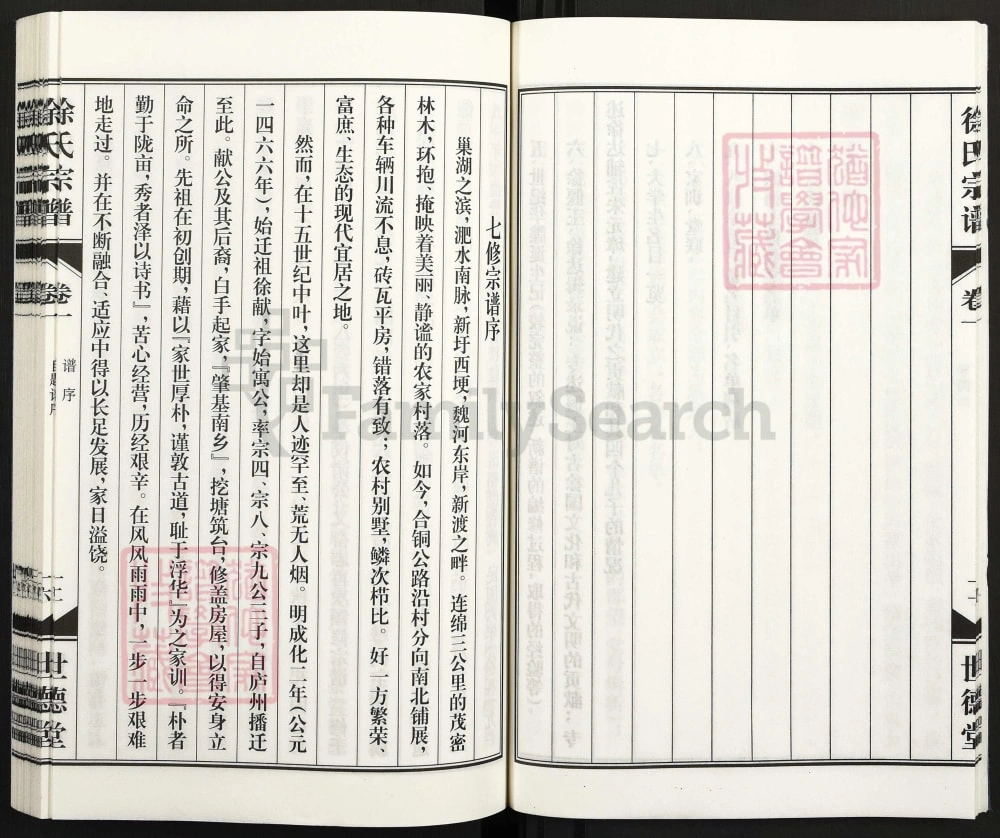 徐氏宗谱
卷一
世德堂
七修宗谱序
巢湖之滨，淝水南脉，新圩西埂，魏河东岸，新渡之畔。连绵三公里的茂密
林木，环抱、掩映着美丽、静谧的农家村落。如今，合铜公路沿村分向南北铺展，
各种车辆川流不息，砖瓦平房，错落有致；农村别墅，鳞次栉比。好一方繁荣、
富庶、生态的现代宜居之地。
然而，在十五世纪中叶，这里却是人迹罕至、荒无人烟。明成化二年（公元
一四六六年），始迁祖徐献，字始寓公，率宗四、宗八、宗九公三子，自庐州播迁
至此。献公及其后裔，白手起家，『肇基南乡』，挖塘筑台，修盖房屋，以得安身立
命之所。先祖在初创期，藉以『家世厚朴，谨敦古道，耻于浮华』为之家训。『朴者
勤于陇亩，秀者泽以诗书』，苦心经营，历经艰辛。在风风雨雨中，一步一步艰难
地走过。并在不断融合、适应中得以长足发展，家日溢饶。
徐氏宗谱
卷一
谱序
世德堂
FamilySearch